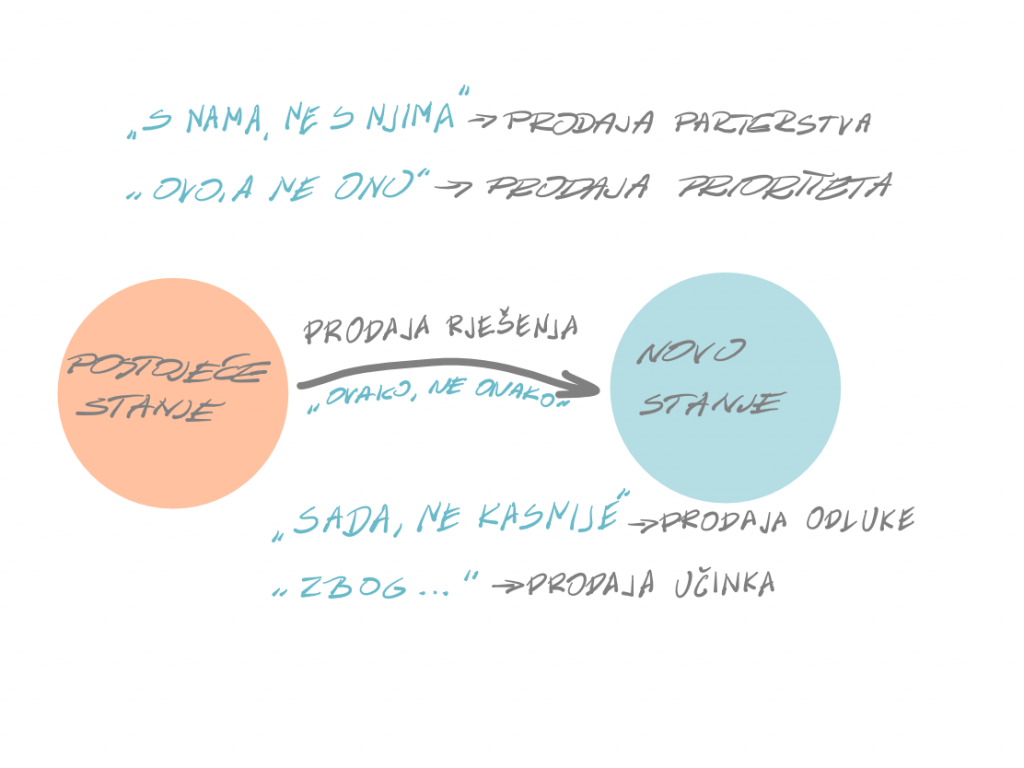 „S NAMA, NE S NJIMA" → PRODAJA PARTERSTVA
„OVO, A NE ONO" → PRODAJA PRIORITETA
PRODAJA RJEŠENJA
POSTOJEĆE
STANJE
„OVAKO, NE ONAKO"
NOVO
STANJE
„SADA, NE KASNIJE" → PRODAJA ODLUKE
„ZBOG..." → PRODAJA UČINKA